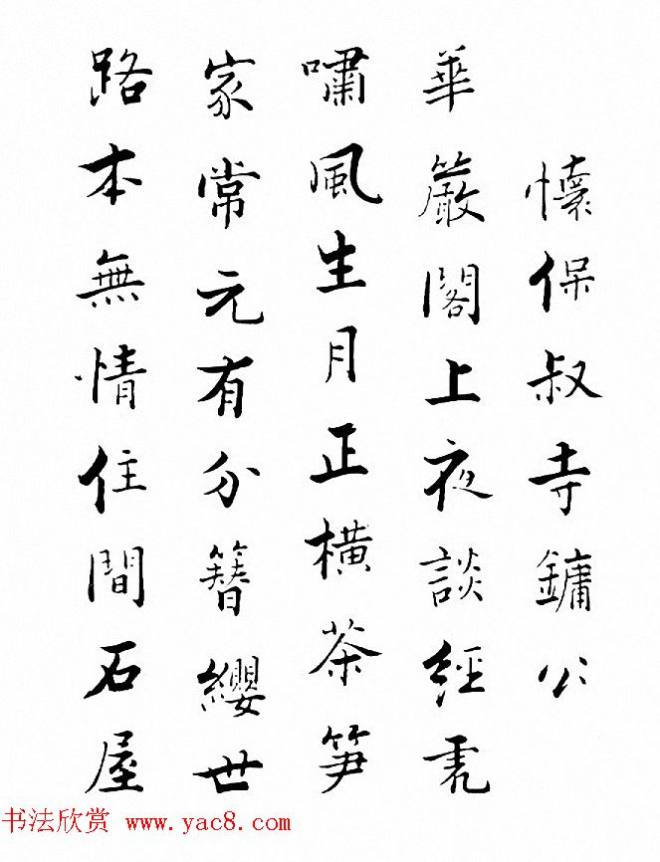 懷保叔寺鏞公
華嚴閣上夜談經虎
嘯風生月正橫茶笋
家常元有分簪纓世
路本無情住間石屋
书法欣赏 www.yac8.com